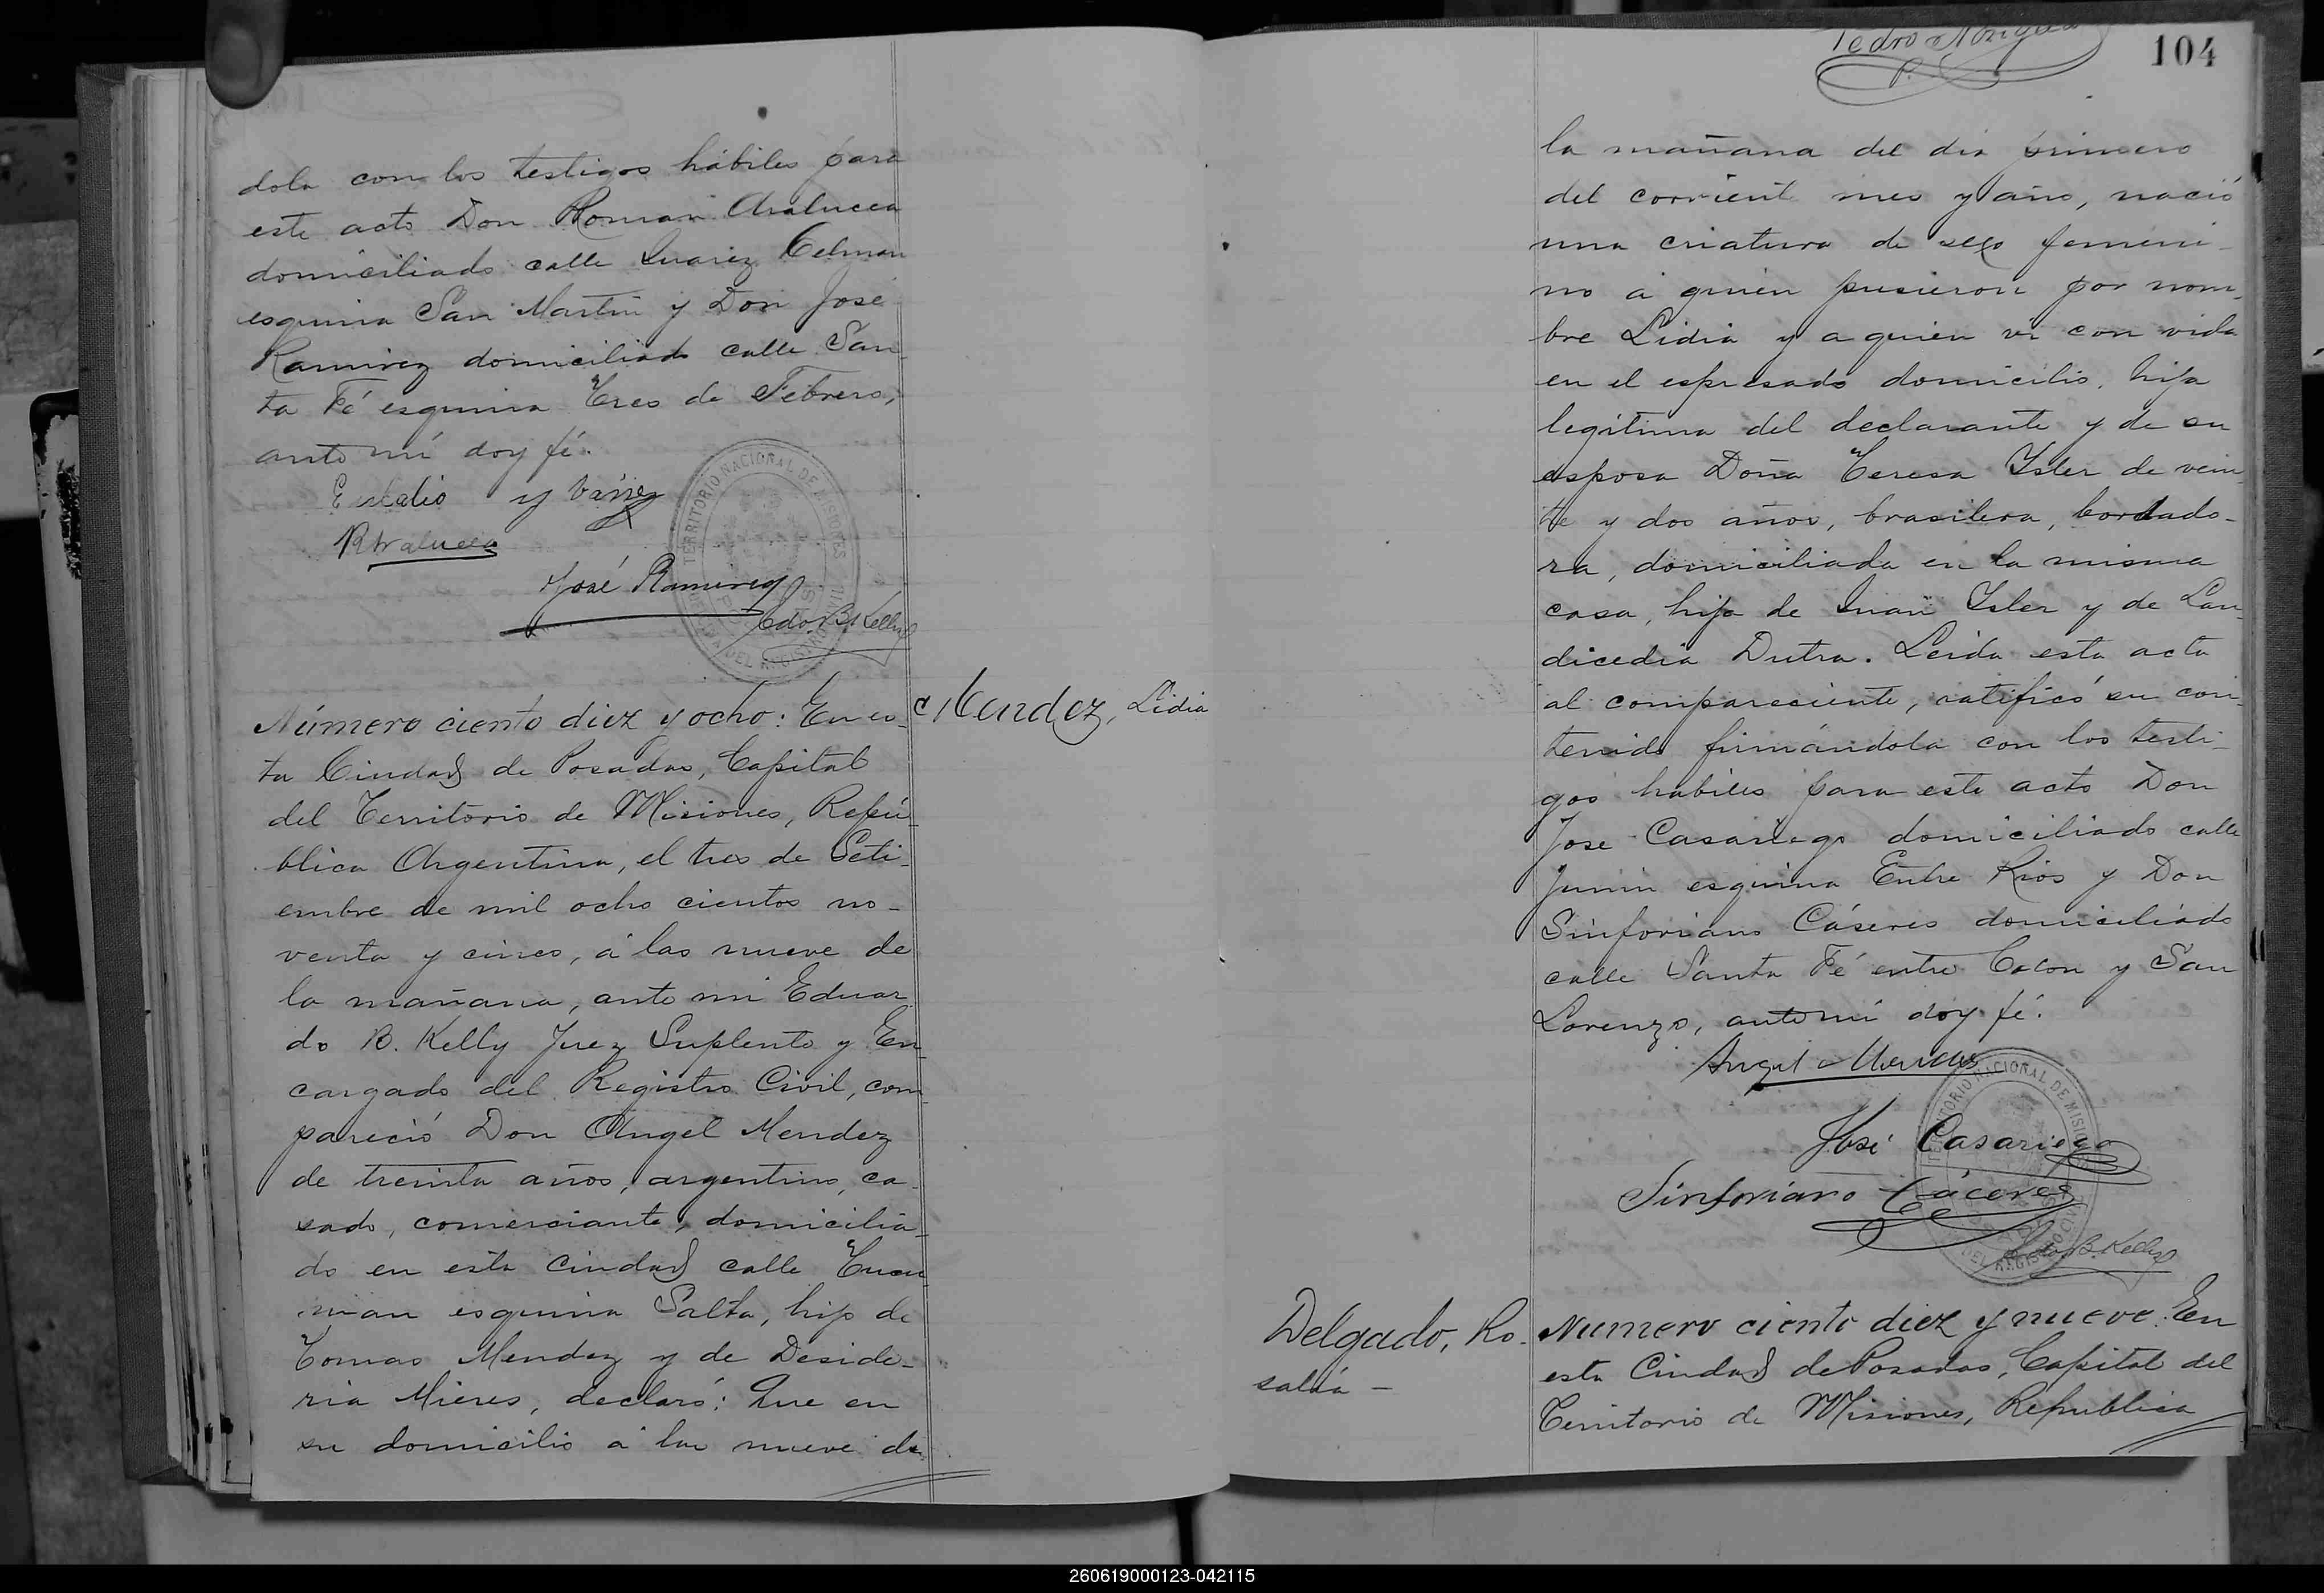 dola con los testigos hábiles para
este acto Don Roman Aralucea
domiciliado calle Juarez Celman
esquina San Martin y Don José
Ramirez domiciliado calle San-
ta Fé esquina Tres de Febrero,
ante mí doy fé.
Eulalio y bañez
R Aralucea
José Ramirez
Edo. B. Kelly
TERRITORIO NACIONAL DE MISIONES
Mendez, Lidia
Número ciento diez y ocho: En es-
ta Ciudad de Posadas, Capital
del Territorio de Misiones, Repú-
blica Argentina, el tres de Seti-
embre de mil ocho cientos no-
venta y cinco, á las nueve de
la mañana, ante mi Eduar-
do B. Kelly Juez Suplente y En-
cargado del Registro Civil, com-
pareció Don Angel Mendez
de treinta años, argentino, ca-
sado, comerciante, domicilia-
do en esta Ciudad calle Tucu-
man esquina Salta, hijo de
Tomas Mendez y de Deside-
ria Mieres, declaró: Que en
su domicilio á las nueve de
104
la mañana del dia primero
del corriente mes y año, nació
una criatura de sexo femeni-
no á quien pusieron por nom-
bre Lidia y a quien vi con vida
en el espresado domicilio, hija
legítima del declarante y de su
esposa Doña Teresa Isler de vein-
te y dos años, brasilera, bordado-
ra, domiciliada en la misma
casa, hija de Juan Isler y de Lan-
dicedia Dutra. Leida esta acta
al compareciente, ratificó su con-
tenido firmándola con los testi-
gos habiles para este acto Don
Jose Casariego domiciliado calle
Junin esquina Entre Rios y Don
Sinforiano Cáseres domiciliado
calle Santa Fé entre Colon y San
Lorenzo, ante mí doy fé.
Angel Mendez
José Casariego
Sinforiano Cáceres
Edo. B. Kelly
TERRITORIO NACIONAL DE MISIONES
Delgado, Ro-
salía -
Numero ciento diez y nueve: En
esta Ciudad de Posadas, Capital del
Territorio de Misiones, Republica
260619000123-042115